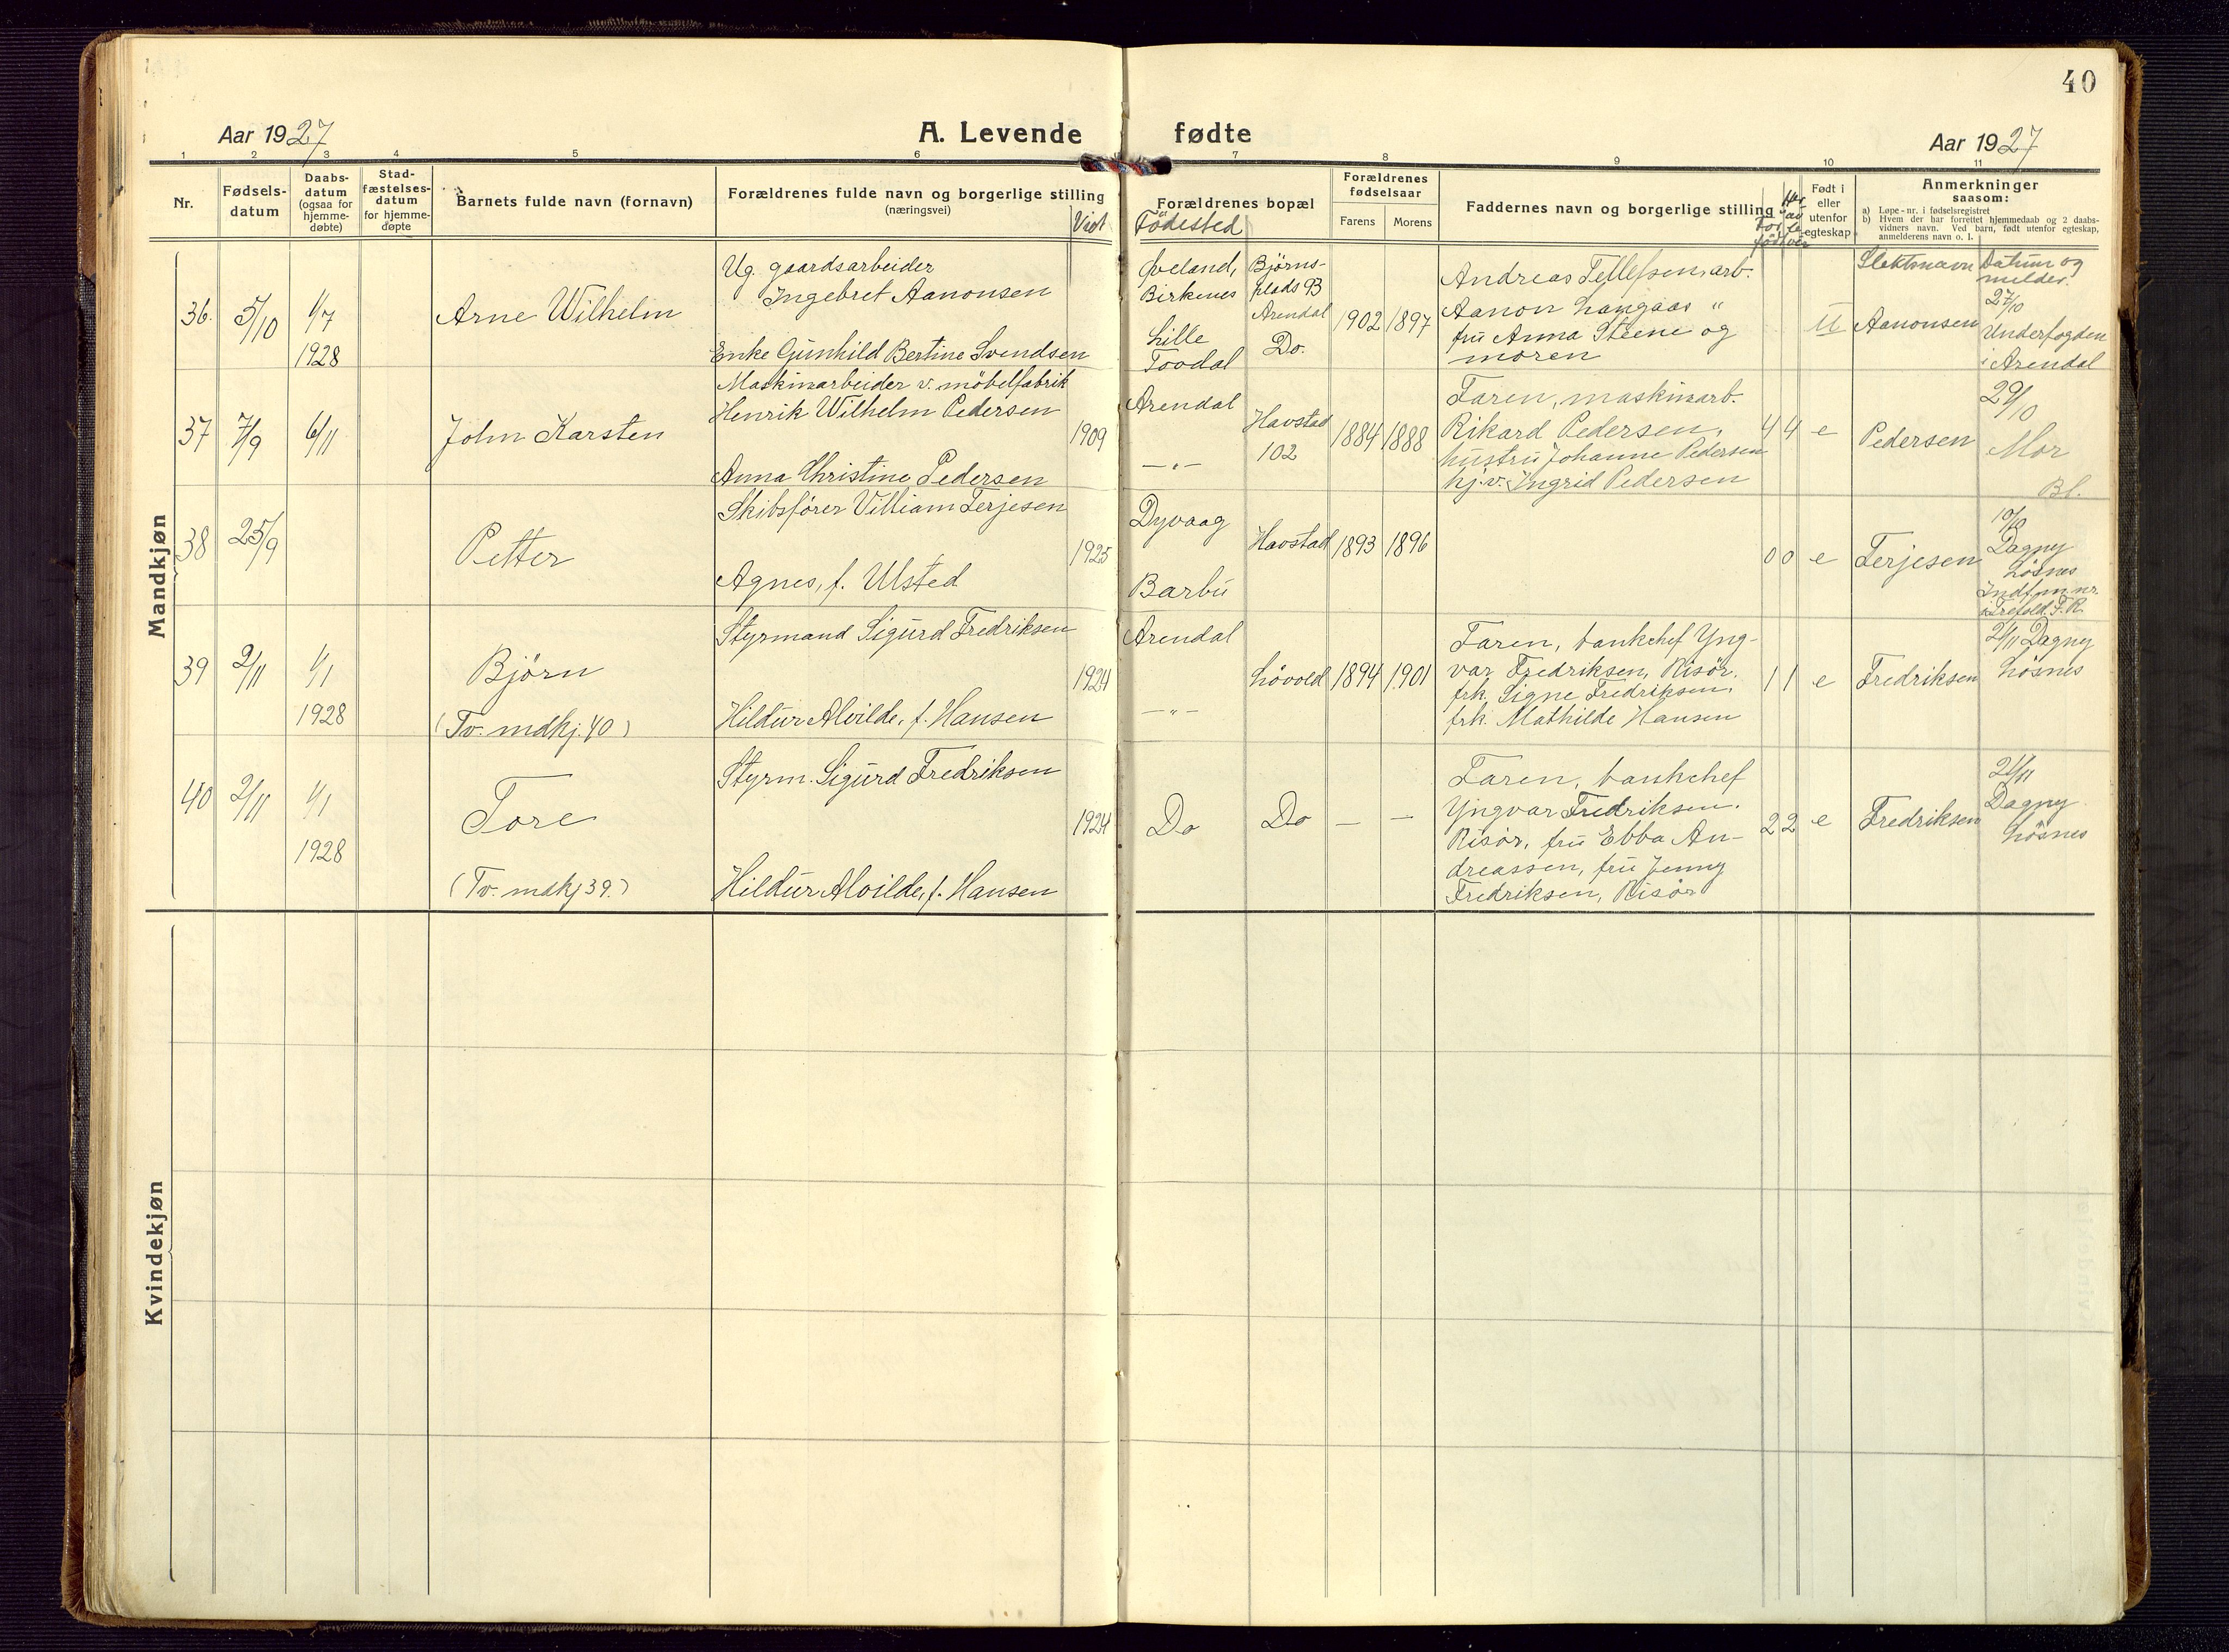 40
Aar 1927
A. Levende fødte
Aar 1927
1 2 3 4 5 6 7 8 9 10 11
Nr.
Fødsels-
datum
Daabs-
datum
(ogsaa for
hjemme-
døbte)
Stad-
fæstelses-
datum
for hjemme-
døpte
Barnets fulde navn (fornavn)
Forældrenes fulde navn og borgerlige stilling
(næringsvei)
Viet
Forældrenes bopæl
Födested
Forældrenes
fødselsaar
Farens
Morens
Faddernes navn og borgerlige stilling
Født i
eller
utenfor
egteskap
Anmerkninger
saasom:
a) Løpe-nr. i fødselsregistret
b) Hvem der har forrettet hjemmedaab og 2 daabs-
vidners navn. Ved barn, født utenfor egteskap,
anmelderens navn o. l.
Slektsnavn
Datum og
melder.
Mandkjøn
36.
5/10
1/7
1928
Arne Wilhelm
Ug. gaardsarbeider
Ingebret Aanonsen
Enke Gunhild Bertine Svendsen
Birkenes
Lille
Toodal
Björns-
plads 93
Arendal
Do.
1902
1897
Andreas Tellefsen, arb.
Aanon Langaas "
fru Anna Steene og
moren
U
Aanonsen
27/10
Underfogden
i Arendal
37
7/9
6/11
John Karsten
Maskinarbeider v. möbelfabrik
Henrik Wilhelm Pedersen
Anna Christine Pedersen
1909
Arendal
— " —
Havstad
102
1884
1888
Faren, maskinarb.
Rikard Pedersen,
hustru Johanne Pedersen
hj.v. Ingrid Pedersen
4 4
e
Pedersen
29/10
Mor
Bl.
38
25/9
Petter
Skibsfører Villiam Terjesen
Agnes, f. Ulsted
1925
Dyvaag
Barbu
Havstad
1893
1896
0 0
e
Terjesen
Dagny
Lösnes
39
2/11
1/1
1928
Björn
(Tv. mdkj. 40)
Styrmand Sigurd Fredriksen
Hildur Alvilde, f. Hansen
1924
Arendal
— " —
Lövold
1894
1901
Faren, bankchef Yng-
var Fredriksen, Risör.
frk. Signe Fredriksen,
frk. Mathilde Hansen
1 1
e
Fredriksen
21/11 Dagny
Lösnes
40
2/11
1/1
1928
Tore
(Tv. mdkj 39.)
Styrm. Sigurd Fredriksen
Hildur Alvilde, f. Hansen
1924
Do
Do
—
—
Faren, bankchef
Yngvar Fredriksen.
Risör, fru Ebba An-
dreassen, fru Jenny
Fredriksen, Risör
2 2
e
Fredriksen
21/11
Dagny
Lösnes
Kvindekjøn